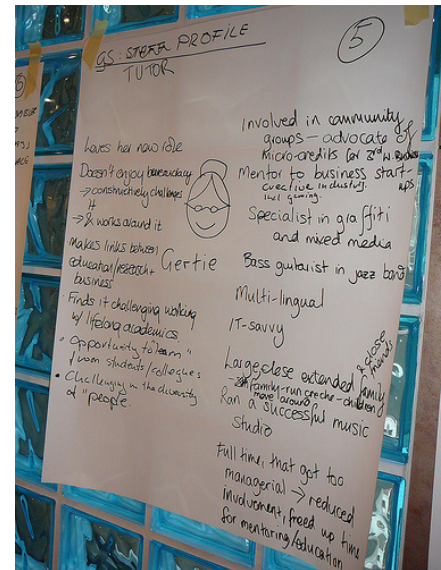 GS: STAFF PROFILE
TUTOR
5
Loves her new role
Doesn't enjoy bureaucracy
→ constructively challenges
it
→ & works around it
Makes links between
education/research +
business
• Finds it challenging working
w/ lifelong academics
• "Opportunity to learn"
from students/colleagues
• Challenging in the diversity
of "people
Gertie
Involved in community
groups - advocate of
micro-credits for 3rd W. Business
Mentor to business start-
ups
creative industry,
incl gaming.
Specialist in graffiti
and mixed media
Bass guitarist in jazz band
Multi-lingual
IT-savvy
Large, close extended family
& close
friends
family-run creche - children
move around
Ran a successful music
studio
Full time, that got too
managerial → reduced
involvement, freed up time
for mentoring/education